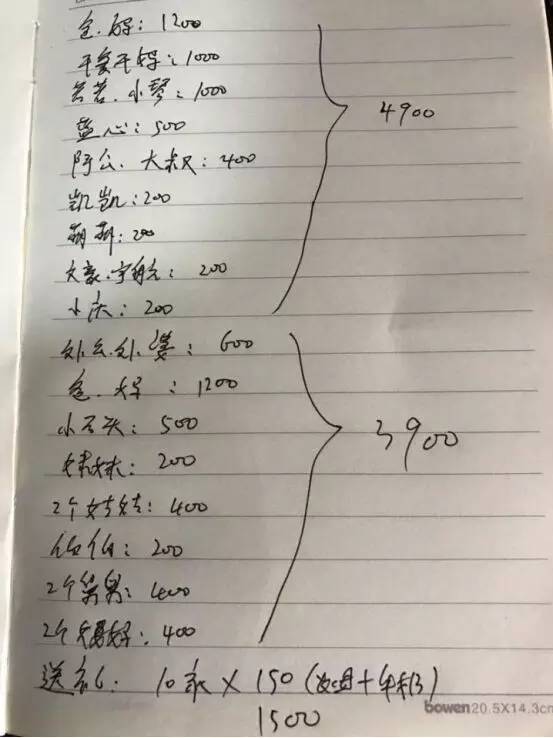 爸.妈：1200
干爸干妈：1000
爷爷.小琴：1000
蓝心：500
阿公.大叔：400
凯凯：200
萌萌：200
4900
文豪.宇航：200
小庆：200
外公.外婆：600
爸.妈：1200
小石头：500
妹妹：200
3900
2个姑姑：400
伯伯：200
2个舅舅：400
2个舅妈：400
送礼：10家×150(
1500
bowen20.5X14.3cm